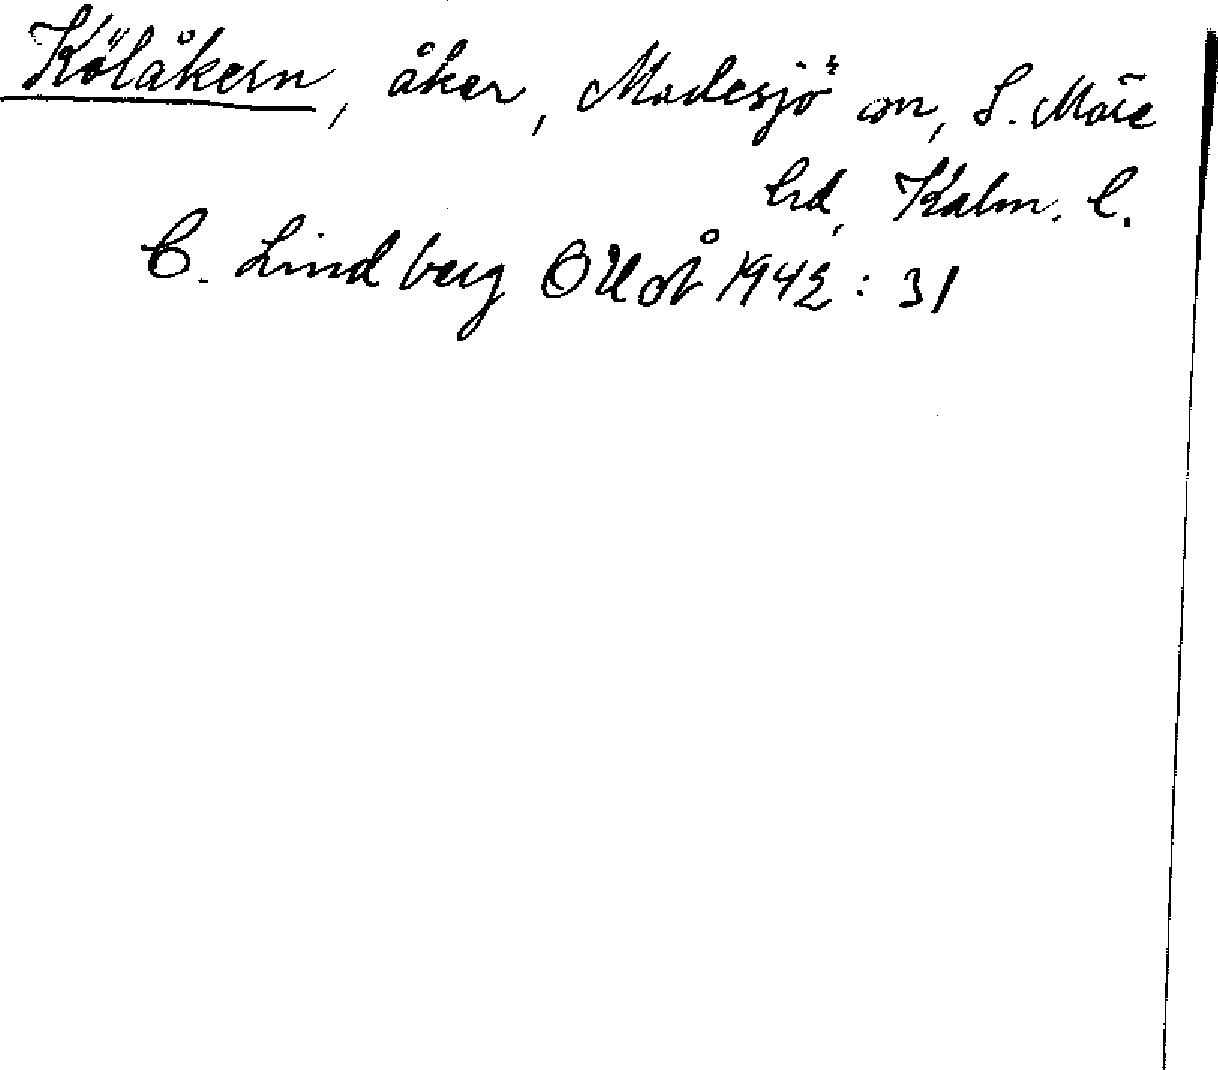 Kölåkern, åker, Madesjö sn, S. Möre
hd, Kalm. l.
C. Lindberg OUoÅ 1942 : 31